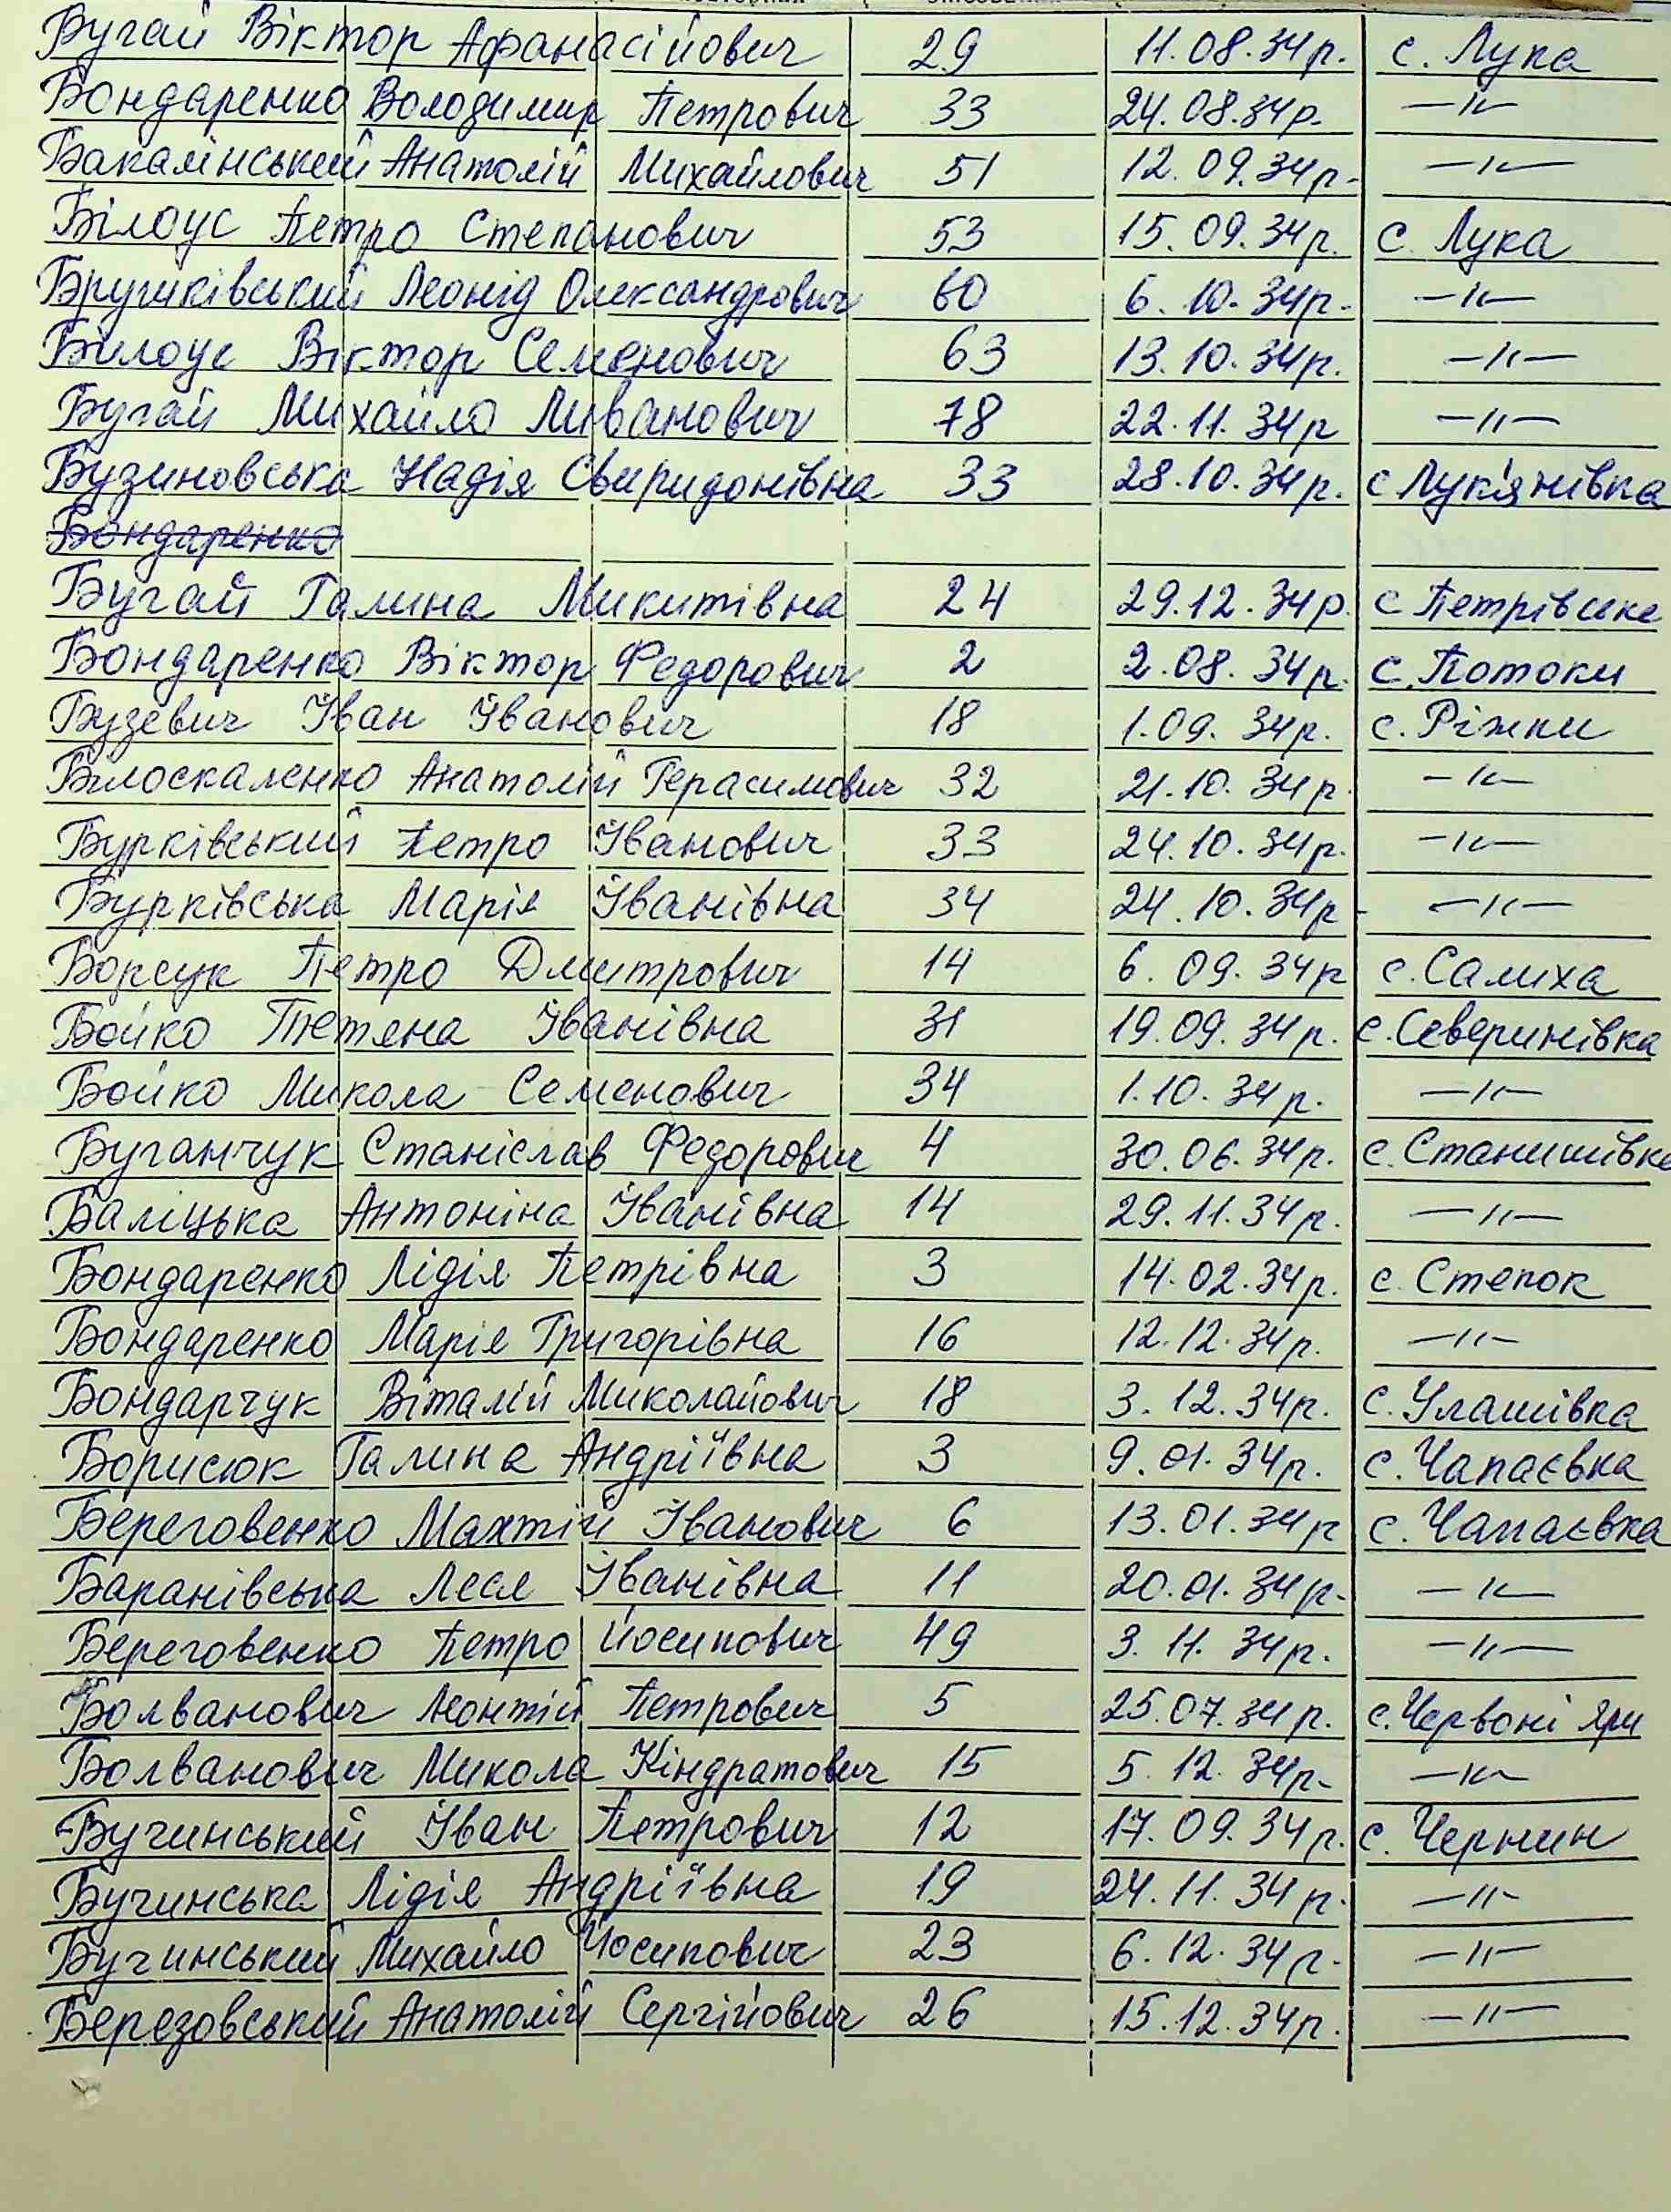 Бугай Віктор Афанасійович 29 11.08.34р. с. Лука
Бондаренко Володимир Петрович 33 24.08.34р. —"—
Бакалінський Анатолій Михайлович 51 12.09.34р. —"—
Білоус Петро Степанович 53 15.09.34р. с. Лука
Бручківський Леонід Олександрович 60 6.10.34р. —"—
Білоус Віктор Семенович 63 13.10.34р. —"—
Бугай Михайло Ливанович 78 22.11.34р —"—
Бузиновська Надія Свиридонівна 33 28.10.34р. с Лук'янівка
Бондаренко
Бугай Галина Микитівна 24 29.12.34р. с Петрівське
Бондаренко Віктор Федорович 2 2.08.34р. с. Потоки
Бузевич Іван Іванович 18 1.09.34р. с. Ріжки
Білоскаленко Анатолій Герасимович 32 21.10.34р. —"—
Бурківський Петро Іванович 33 24.10.34р. —"—
Бурківська Марія Іванівна 34 24.10.34р. —"—
Борсук Петро Дмитрович 14 6.09.34р с. Салиха
Бойко Тетяна Іванівна 31 19.09.34р. с. Северинівка
Бойко Микола Семенович 34 1.10.34р. —"—
Буганчук Станіслав Федорович 4 30.06.34р. с. Станишівка
Баліцька Антоніна Іванівна 14 29.11.34р. —"—
Бондаренко Лідія Петрівна 3 14.02.34р. с. Степок
Бондаренко Марія Григорівна 16 12.12.34р. —"—
Бондарчук Віталій Миколайович 18 3.12.34р. с. Улашівка
Борисюк Галина Андріївна 3 9.01.34р. с. Чапаєвка
Береговенко Махтій Іванович 6 13.01.34р с. Чапаєвка
Баранівська Леся Іванівна 11 20.01.34р. —"—
Береговенко Петро Йосипович 49 3.11.34р. —"—
Болванович Леонтій Петрович 5 25.07.34р. с. Червоні Яри
Болванович Микола Кіндратович 15 5.12.34р. —"—
Бучинський Іван Петрович 12 17.09.34р. с. Чернин
Бучинська Лідія Андріївна 19 24.11.34р. —"—
Бучинський Михайло Йосипович 23 6.12.34р. —"—
Березовський Анатолій Сергійович 26 15.12.34р. —"—